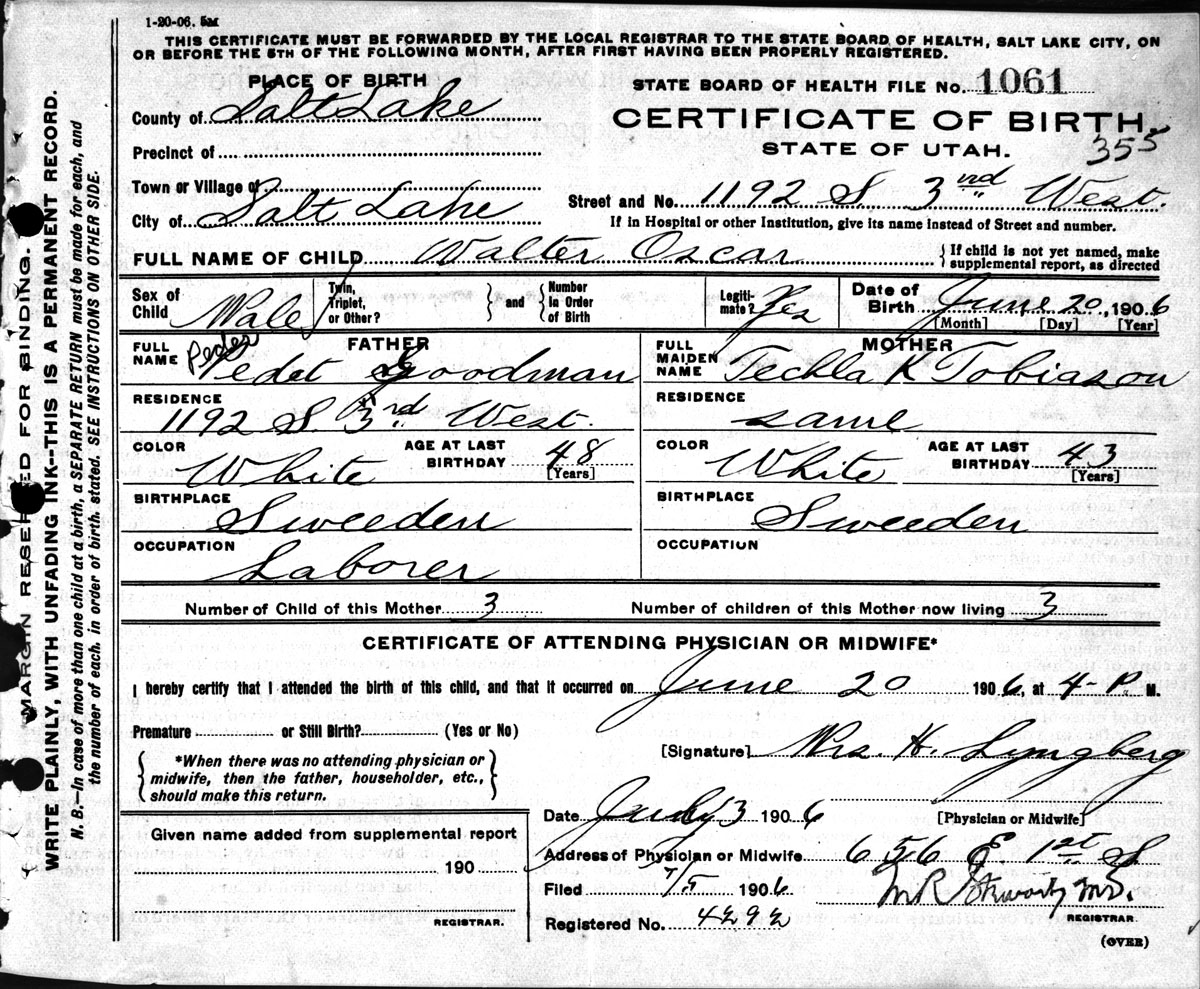 1-20-06. 5M
THIS CERTIFICATE MUST BE FORWARDED BY THE LOCAL REGISTRAR TO THE STATE BOARD OF HEALTH, SALT LAKE CITY, ON
OR BEFORE THE 5TH OF THE FOLLOWING MONTH, AFTER FIRST HAVING BEEN PROPERLY REGISTERED.
MARGIN RESERVED FOR BINDING.
WRITE PLAINLY, WITH UNFADING INK--THIS IS A PERMANENT RECORD.
N. B.—In case of more than one child at a birth, a SEPARATE RETURN must be made for each, and
the number of each, in order of birth, stated. SEE INSTRUCTIONS ON OTHER SIDE.
PLACE OF BIRTH
County of Salt Lake
Precinct of
Town or Village of
City of Salt Lake
STATE BOARD OF HEALTH FILE No. 1061
CERTIFICATE OF BIRTH.
STATE OF UTAH. 355
Street and No. 1192 S. 3rd West.
If in Hospital or other Institution, give its name instead of Street and number.
FULL NAME OF CHILD Walter Oscar { If child is not yet named, make
supplemental report, as directed
Sex of Child Male
Twin, Triplet, or Other? } and { Number In Order of Birth
Legitimate? Yes
Date of Birth June 20, 1906
[Month] [Day] [Year]
FATHER
FULL NAME Peder Pedet Goodman
RESIDENCE
1192 S. 3rd West.
COLOR White
AGE AT LAST BIRTHDAY 48 [Years]
BIRTHPLACE
Sweeden
OCCUPATION
Laborer
MOTHER
FULL MAIDEN NAME Teckla K Tobiason
RESIDENCE
same
COLOR White
AGE AT LAST BIRTHDAY 43 [Years]
BIRTHPLACE
Sweeden
OCCUPATION
Number of Child of this Mother 3 Number of children of this Mother now living 3
CERTIFICATE OF ATTENDING PHYSICIAN OR MIDWIFE*
I hereby certify that I attended the birth of this child, and that it occurred on June 20 1906, at 4-P. M.
Premature or Still Birth? (Yes or No)
{ *When there was no attending physician or
midwife, then the father, householder, etc.,
should make this return. }
[Signature] Mrs. H. Lyngberg
Date July 3 1906 [Physician or Midwife]
Given name added from supplemental report
190
REGISTRAR.
Address of Physician or Midwife 656 E. 1st S
Filed 7/5 1906 M R M.D.
REGISTRAR.
Registered No. 4292
(OVER)